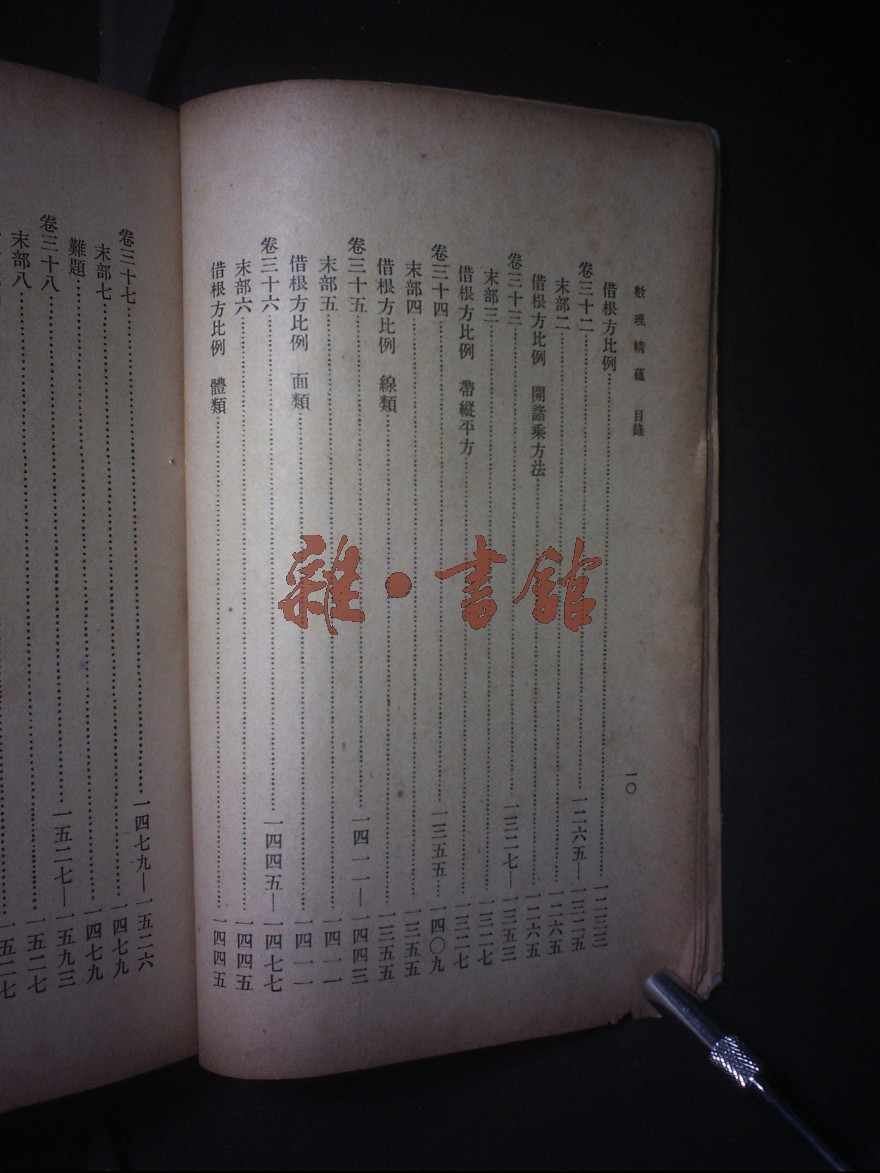 數理精蘊 目錄 一〇
借根方比例……一二三三
卷三十二……一二六五—一三二五
末部二……一二六五
借根方比例 開諸乘方法……一二六五
卷三十三……一三二七—一三五三
末部三……一三二七
借根方比例 帶縱平方……一三二七
卷三十四……一三五五—一四〇九
末部四……一三五五
借根方比例 線類……一三五五
卷三十五……一四一一—一四四三
末部五……一四一一
借根方比例 面類……一四一一
卷三十六……一四四五—一四七七
末部六……一四四五
借根方比例 體類……一四四五
卷三十七……一四七九—一五二六
末部七……一四七九
難題……一四七九
卷三十八……一五二七—一五九三
末部八……一五二七
一五二七
雜·書館